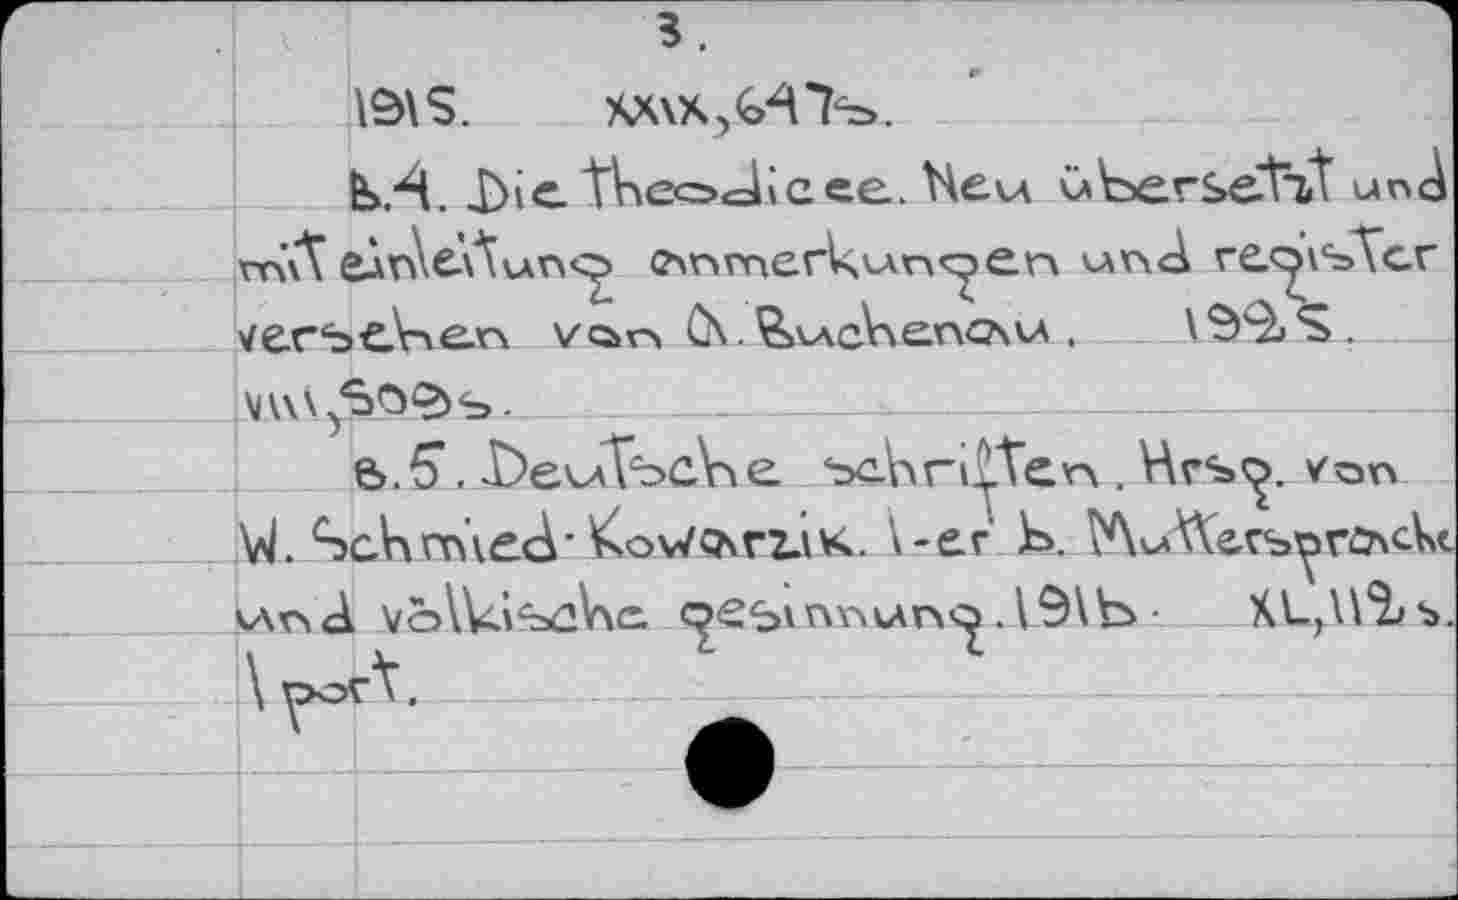 3.
1915. XXIX,647s.
B.4. Die Theodicee. Neu übersetzt und
mit einleitung anmerkungen und register
versehen von A. Buchenau. 1925.
VIII,508s.
B.5. Deutsche schriften. Hrsg. von
W. Schmied-Kowarzik. 1-er b. Muttersprache
und völkische gesinnung. 1916. XL,112s.
1 port.